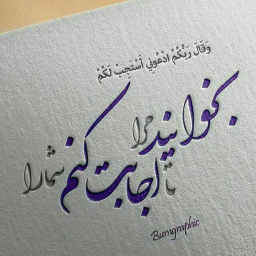 وَقَالَ رَبُّكُمُ ادْعُونِي أَسْتَجِبْ لَكُمْ
بخوانید مرا
تا اجابت کنم شما را
Bamgraphic